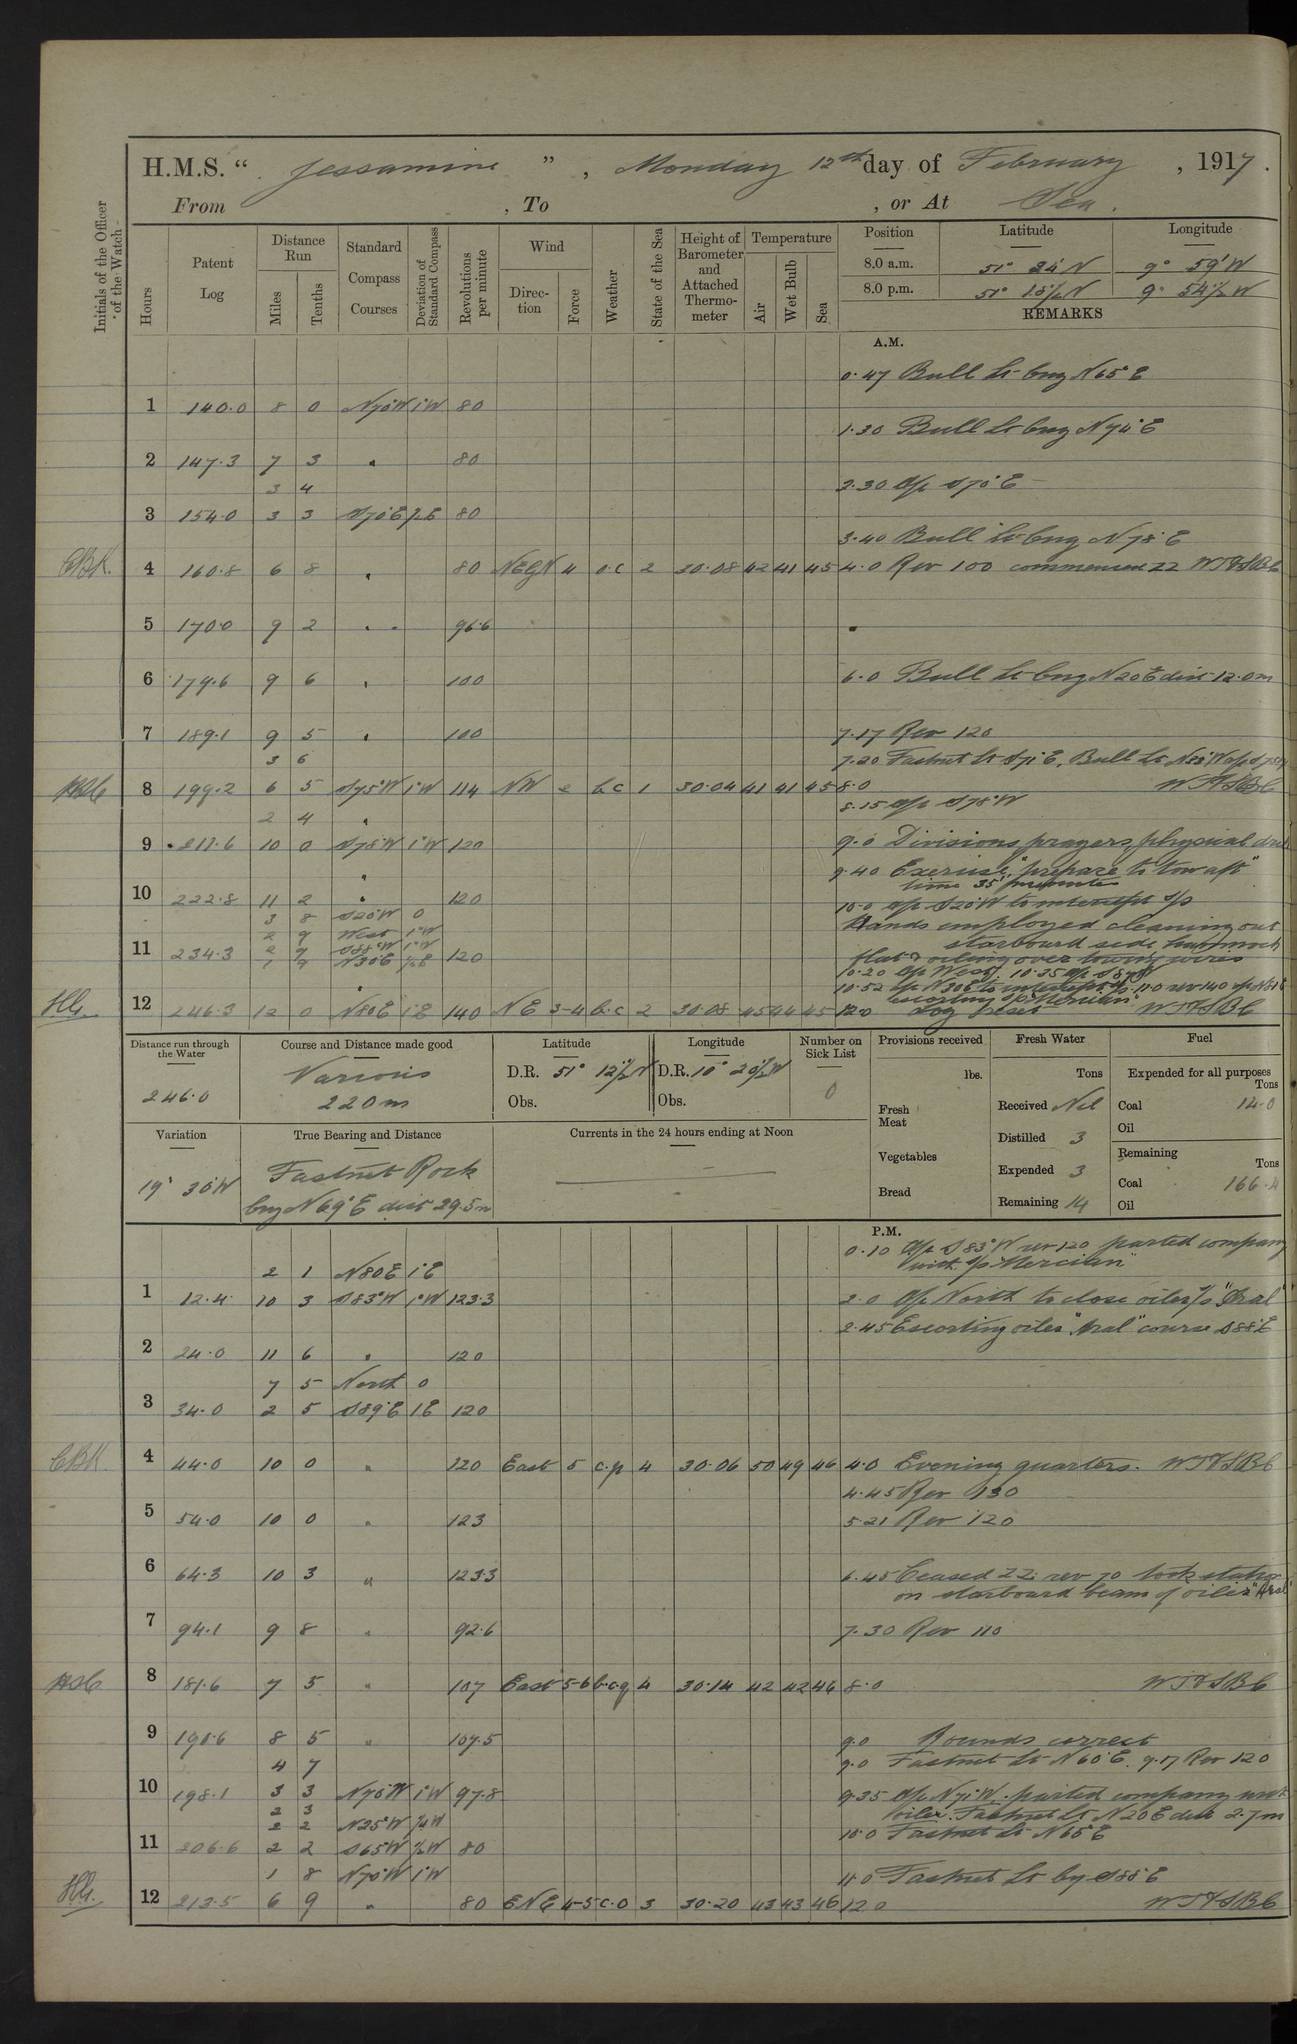 H.M.S. “ Jessamine ” , Monday 12th day of February , 1917 .
From , To , or At Sea.
Initials of the Officer of the Watch
Hours
Patent Log
Distance Run
Miles
Tenths
Standard Compass Courses
Deviation of Standard Compass
Revolutions per minute
Wind
Direction
Force
Weather
State of the Sea
Height of Barometer and Attached Thermometer
Temperature
Air
Wet Bulb
Sea
Position Latitude Longitude
8.0 a.m. 51° 34' N 9° 59' W
8.0 p.m. 51° 15½ N 9° 54½ W
REMARKS
A.M.
0.47 Bull Lt brg N65°E
1 140.0 8 0 N70W 1°W 80
1.30 Bull Lt brg N74°E
2 147.3 7 3 " 80
3 4 2.30 A/c S70°E
3 154.0 3 3 S70°E ½E 80
3.40 Bull Lt brg N78°E
CBK. 4 160.8 6 8 " 80 NEGN 4 o.c 2 30.08 42 41 45 4.0 Rev 100 commenced ZZ WTASBC
5 170.0 9 2 " " 96.6
6 179.6 9 6 " 100 6.0 Bull Lt brg N20°E dist 12.0m
7 189.1 9 5 " 100 7.17 Rev 120
3 6 7.20 Fastnet Lt S71°E, Bull Lt N20°W a/c S75W
8 199.2 6 5 S75°W 1°W 114 NW 2 b.c 1 30.04 41 41 45 8.0 WTASBC
2 4 " 8.15 A/c S78°W
9 211.6 10 0 S78°W 1°W 120 9.0 Divisions prayers, physical drill
" 9.40 Exercise "prepare to tow aft"
time 35 minutes
10 222.8 11 2 " 120 10.0 A/c S20°W to intercept S/S
3 8 S20°W 0 Hands employed cleaning out
2 9 West 1°W starboard side hammock
11 234.3 2 9 S88°W 1°W 120 flat & oiling over towing wires
1 9 N30°E ½E 10.20 A/c West, 10.35 A/c S89W
" 10.52 A/c N30E to intercept S/S 11.0 rev 140 A/c N80E
escorting S/S "Mercian"
HG. 12 246.3 12 0 N80E 1°E 140 NE 3-4 b.c 2 30.08 45 44 45 12.0 Log reset WTASBC
Distance run through the Water
246.0
Course and Distance made good
Various
220m
Latitude
D.R. 51° 12½ N
Obs.
Longitude
D.R. 10° 20½ W
Obs.
Number on Sick List
0
Provisions received
lbs.
Fresh Meat
Vegetables
Bread
Fresh Water
Tons
Received Nil
Distilled 3
Expended 3
Remaining 14
Fuel
Expended for all purposes
Tons
Coal 14.0
Oil
Remaining
Tons
Coal 166.4
Oil
Variation
19° 30'W
True Bearing and Distance
Fastnet Rock
brg N69°E dist 29.5m
Currents in the 24 hours ending at Noon
P.M.
0.10 A/c S83°W rev 120 parted company
with S/S "Mercian"
2 1 N80E 1°E
1 12.4 10 3 S83°W 1°W 123.3 2.0 A/c North to close oiler S/S "Aral"
2.45 Escorting oiler "Aral" course S88°E
2 24.0 11 6 " 120
7 5 North 0
3 34.0 2 5 S89°E 1E 120
CBK 4 44.0 10 0 " 120 East 5 c.p 4 30.06 50 49 46 4.0 Evening quarters. WTASBC
4.45 Rev 130
5 54.0 10 0 " 123 5.21 Rev 120
6 64.3 10 3 " 123.3 6.45 Ceased ZZ, rev 70 took station
on starboard beam of oiler "Aral"
7 94.1 9 8 " 92.6 7.30 Rev 110
8 181.6 7 5 " 107 East 5-6 b.c.q 4 30.14 42 42 46 8.0 WTASBC
9 190.6 8 5 " 107.5 9.0 Rounds correct
4 7 9.0 Fastnet Lt N60°E. 9.17 Rev 120
10 198.1 3 3 N70°W 1°W 97.8 9.35 A/c N71°W. parted company with
2 3 oiler. Fastnet Lt N20E dist 2.7m
2 2 N25°W ¼W 10.0 Fastnet Lt N65°E
11 206.6 2 2 S65W ½W 80
1 8 N70°W 1°W 11.0 Fastnet Lt by S88°E
HG. 12 213.5 6 9 " 80 ENE 4-5 c.o 3 30.20 43 43 46 12.0 WTASBC